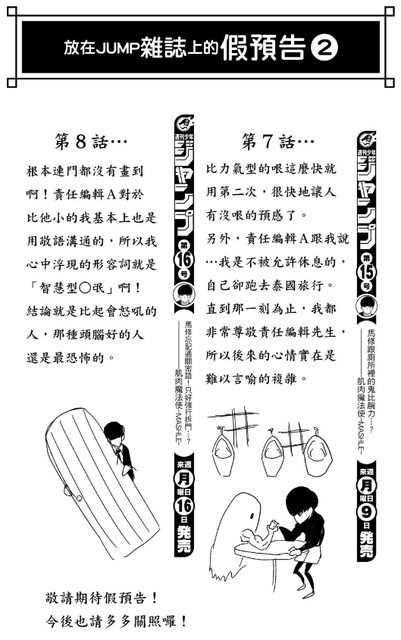 放在JUMP雜誌上的假預告2
第7話…
比力氣型的哏這麼快就
用第二次，很快地讓人
有沒哏的預感了。
另外，責任編輯A跟我說
…我是不被允許休息的，
自己卻跑去泰國旅行。
直到那一刻為止，我都
非常尊敬責任編輯先生，
所以後來的心情實在是
難以言喻的複雜。
週刊少年
ジャンプ
第15号
馬修跟廁所裡的鬼比腕力…？
——肌肉魔法使-MASHLE-
来週月曜日9日発売
第8話…
根本連門都沒有畫到
啊！責任編輯A對於
比他小的我基本上也是
用敬語溝通的，所以我
心中浮現的形容詞就是
「智慧型〇哏」啊！
結論就是比起會怒吼的
人，那種頭腦好的人
還是最恐怖的。
週刊少年
ジャンプ
第16号
馬修忘記通關密語！只好強行拆門…？
——肌肉魔法使-MASHLE-
来週月曜日16日発売
敬請期待假預告！
今後也請多多關照囉！